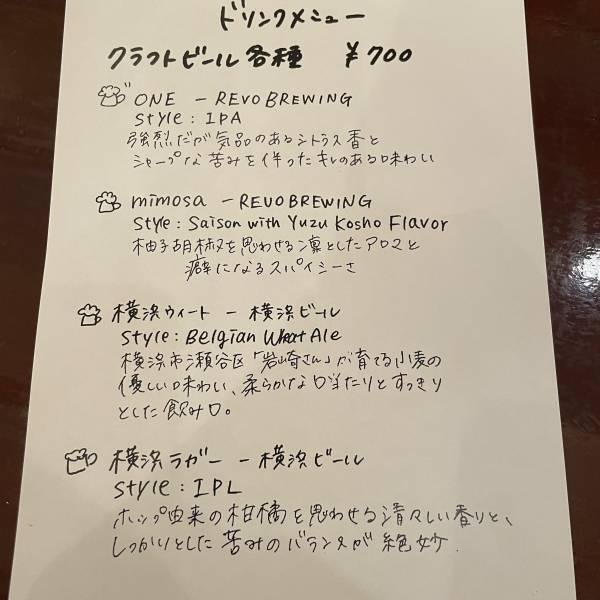 ドリンクメニュー
クラフトビール各種 ¥700
ONE - REVO BREWING
Style: IPA
強烈だが気品のあるシトラス香と
シャープな苦みを伴ったキレのある味わい
mimosa - REVO BREWING
Style: Saison with Yuzu Kosho Flavor
柚子胡椒を思わせる凛としたアロマと
癖になるスパイシーさ
横浜ウィート - 横浜ビール
Style: Belgian Wheat Ale
横浜市瀬谷区「岩崎さん」が育てる小麦の
優しい味わい、柔らかな口当たりとすっきり
とした飲み口。
横浜ラガー - 横浜ビール
Style: IPL
ホップ由来の柑橘を思わせる清々しい香りと、
しっかりとした苦みのバランスが絶妙.